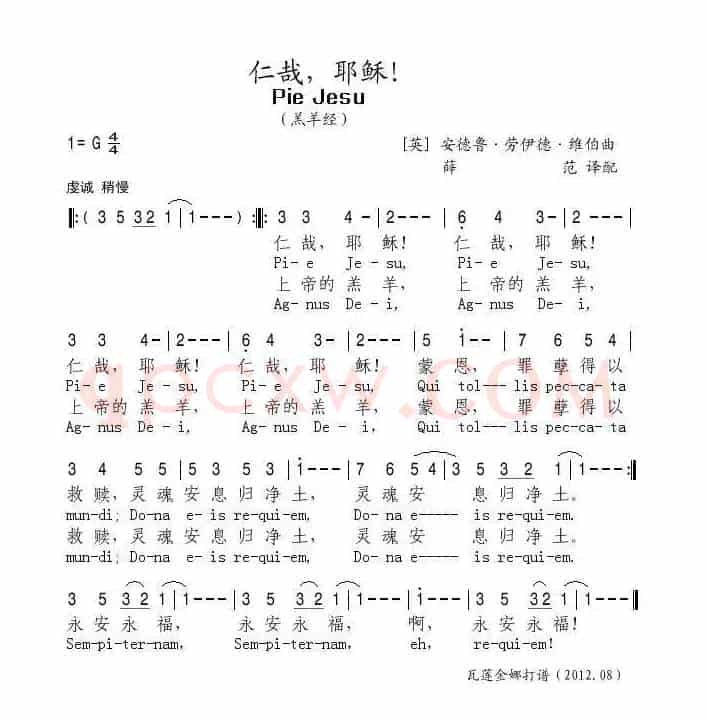 仁哉，耶稣！
Pie Jesu
（羔羊经）
1=G 4/4
[英] 安德鲁·劳伊德·维伯曲
薛 范 译配
虔诚 稍慢
‖:( 3 5 32 1 | 1--- ) :‖: 3 3 4- | 2--- | 6 4 3- | 2--- |
仁哉，耶稣！ 仁哉，耶稣！
Pi- e Je- su, Pi- e Je- su,
上帝的羔羊， 上帝的羔羊，
Ag- nus De- i, Ag- nus De- i,
3 3 4- | 2--- | 6 4 3- | 2--- | 5 1-- | 7 6 5 4 |
仁哉，耶稣！ 仁哉，耶稣！ 蒙恩，罪孽得以
Pi- e Je- su, Pi- e Je- su, Qui tol--- lis pec-ca-ta
上帝的羔羊， 上帝的羔羊， 蒙恩，罪孽得以
Ag- nus De- i, Ag- nus De- i, Qui tol--- lis pec-ca-ta
3 4 5 5 | 5 5 5 3 | 1--- | 7 6 54 3 | 5 3 32 1 | 1--- :‖
救赎，灵魂安息归净土， 灵魂安 息归净土。
mun-di; Do-na e-is re-qui-em, Do-na e----- is re-qui-em.
救赎，灵魂安息归净土， 灵魂安 息归净土。
mun-di; Do-na e-is re-qui-em, Do-na e----- is re-qui-em.
3 5 32 1 | 1--- | 3 5 32 1 | 1--- | 1--- | 3 5 32 1 | 1--- ‖
永安永福， 永安永福， 啊， 永安永福！
Sem-pi-ter-nam, Sem-pi-ter-nam, eh, re-qui-em!
瓦莲金娜打谱（2012.08）
qccxw.com